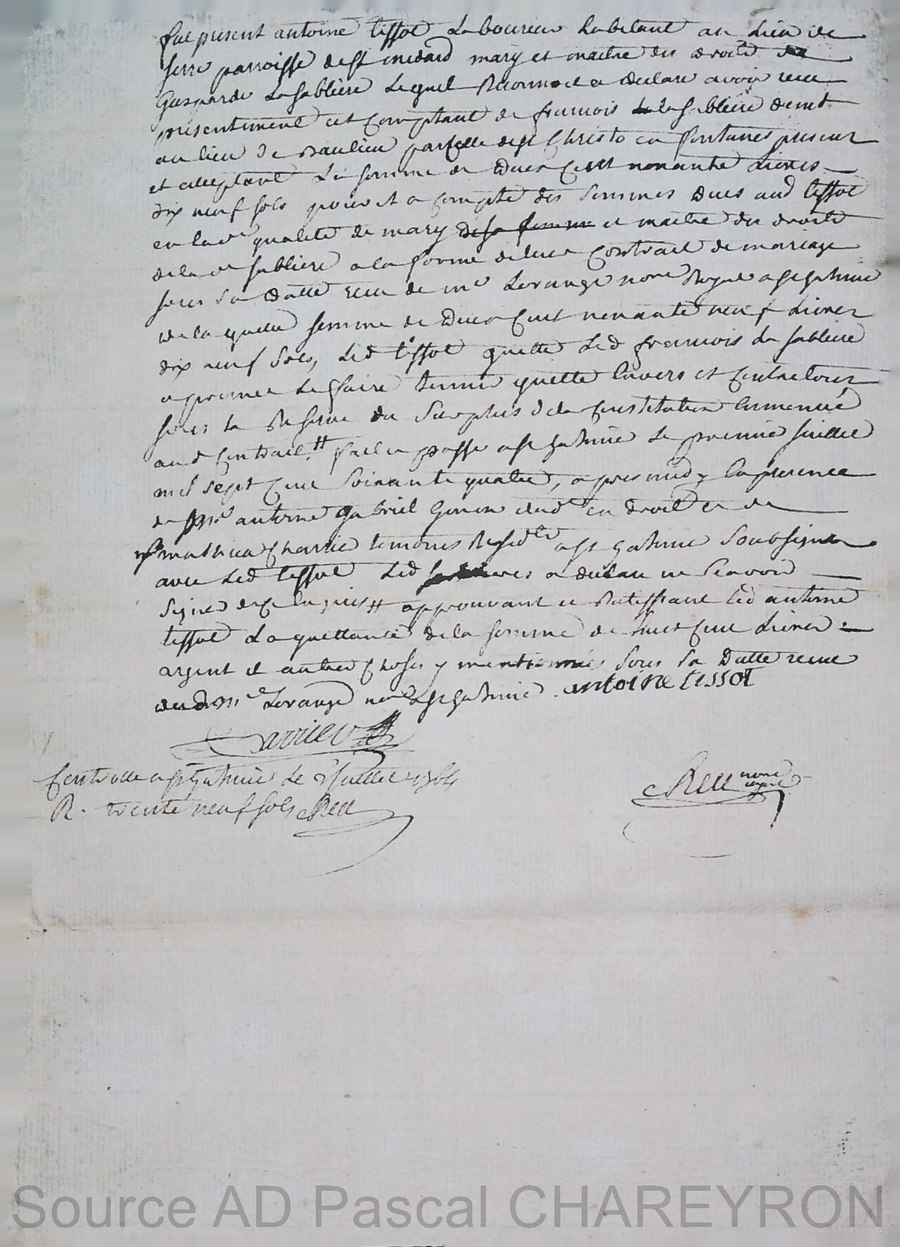 fut present antoine tissot Laboureur habitant au Lieu de
serre parroisse de st medard mary et maitre des droits de
Gasparde Lasabliere Lequel Reconnoit a declare avoir receu
presentement et Comptant de francois de la Sabliere demt
au lieu de Baulieu parcelle de st Christo en fontanes present
et acceptant La somme de Deux Cent nonante Livres
dix neuf sols à compte des sommes Dues aud tissot
en lad qualité de mary de sa femme et maitre des droits
de la de sabliere a la forme de leur Contract de mariage
sous sa datte receu de me Lorange nore Royal a st galmier
de la quelle somme de Deux Cent nonante neuf Livres
dix neuf sols, Led tissot quitte Led francois La sabliere
a promet Le faire tenir quitte Envers et Contre tous
sous la Reserve du surplus de la Constitution Enoncée
aud Contract. fait et passé a st galmier Le premier juillet
mil sept Cent Soixante quatre, apres midy En presence
de Mr antoine gabriel en droit et de
mathieu Charrier temoins Reside a st galmier Soubsignes
avec Led tissot Led a declaré ne Scavoir
signer de ce Enquis approuvant et Ratiffiant led antoine
tissot La quittance de la somme de Cent Livres
argent et autres Choses y mentionnes sous sa Datte receue
dud me Lorange nore a st galmier. antoine tissot
Controllé a st galmier Le juillet 1764
R. trente neuf sols
nore
Source AD Pascal CHAREYRON